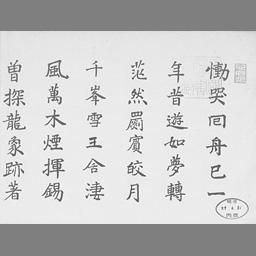 慟哭回舟已一
年昔遊如夢轉
茫然罽賓皎月
千峯雪王舍淒
風萬木煙揮錫
曾探龍象跡著